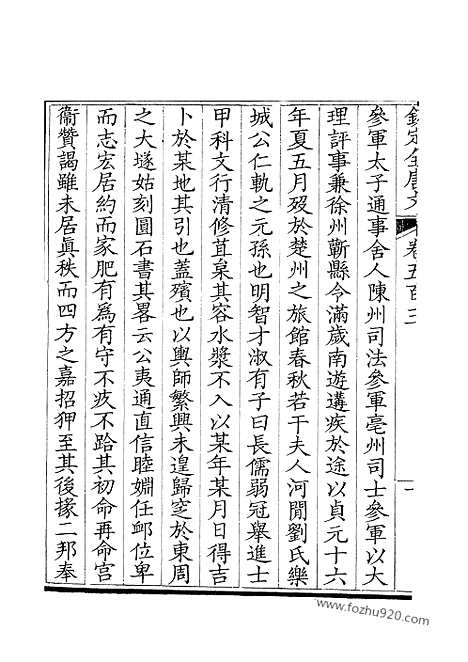 欽定全唐文
卷五百三
一
參軍太子通事舍人陳州司法參軍亳州司士參軍以大
理評事兼徐州蘄縣令滿歲南遊遘疾於途以貞元十六
年夏五月歿於楚州之旅館春秋若干夫人河閒劉氏樂
城公仁軌之元孫也明智才淑有子曰長儒弱冠舉進士
甲科文行清修苴枲其容水漿不入以某年某月日得吉
卜於某地其引也蓋殯也以輿師繁興未遑歸窆於東周
之大墜姑刻圓石書其畧云公夷通直信睦婣任卹位卑
而志宏居約而家肥有爲有守不疚不跲其初命再命宮
衞贊謁雖未居眞秩而四方之嘉招狎至其後掾二邦奉
www.fozhu920.com